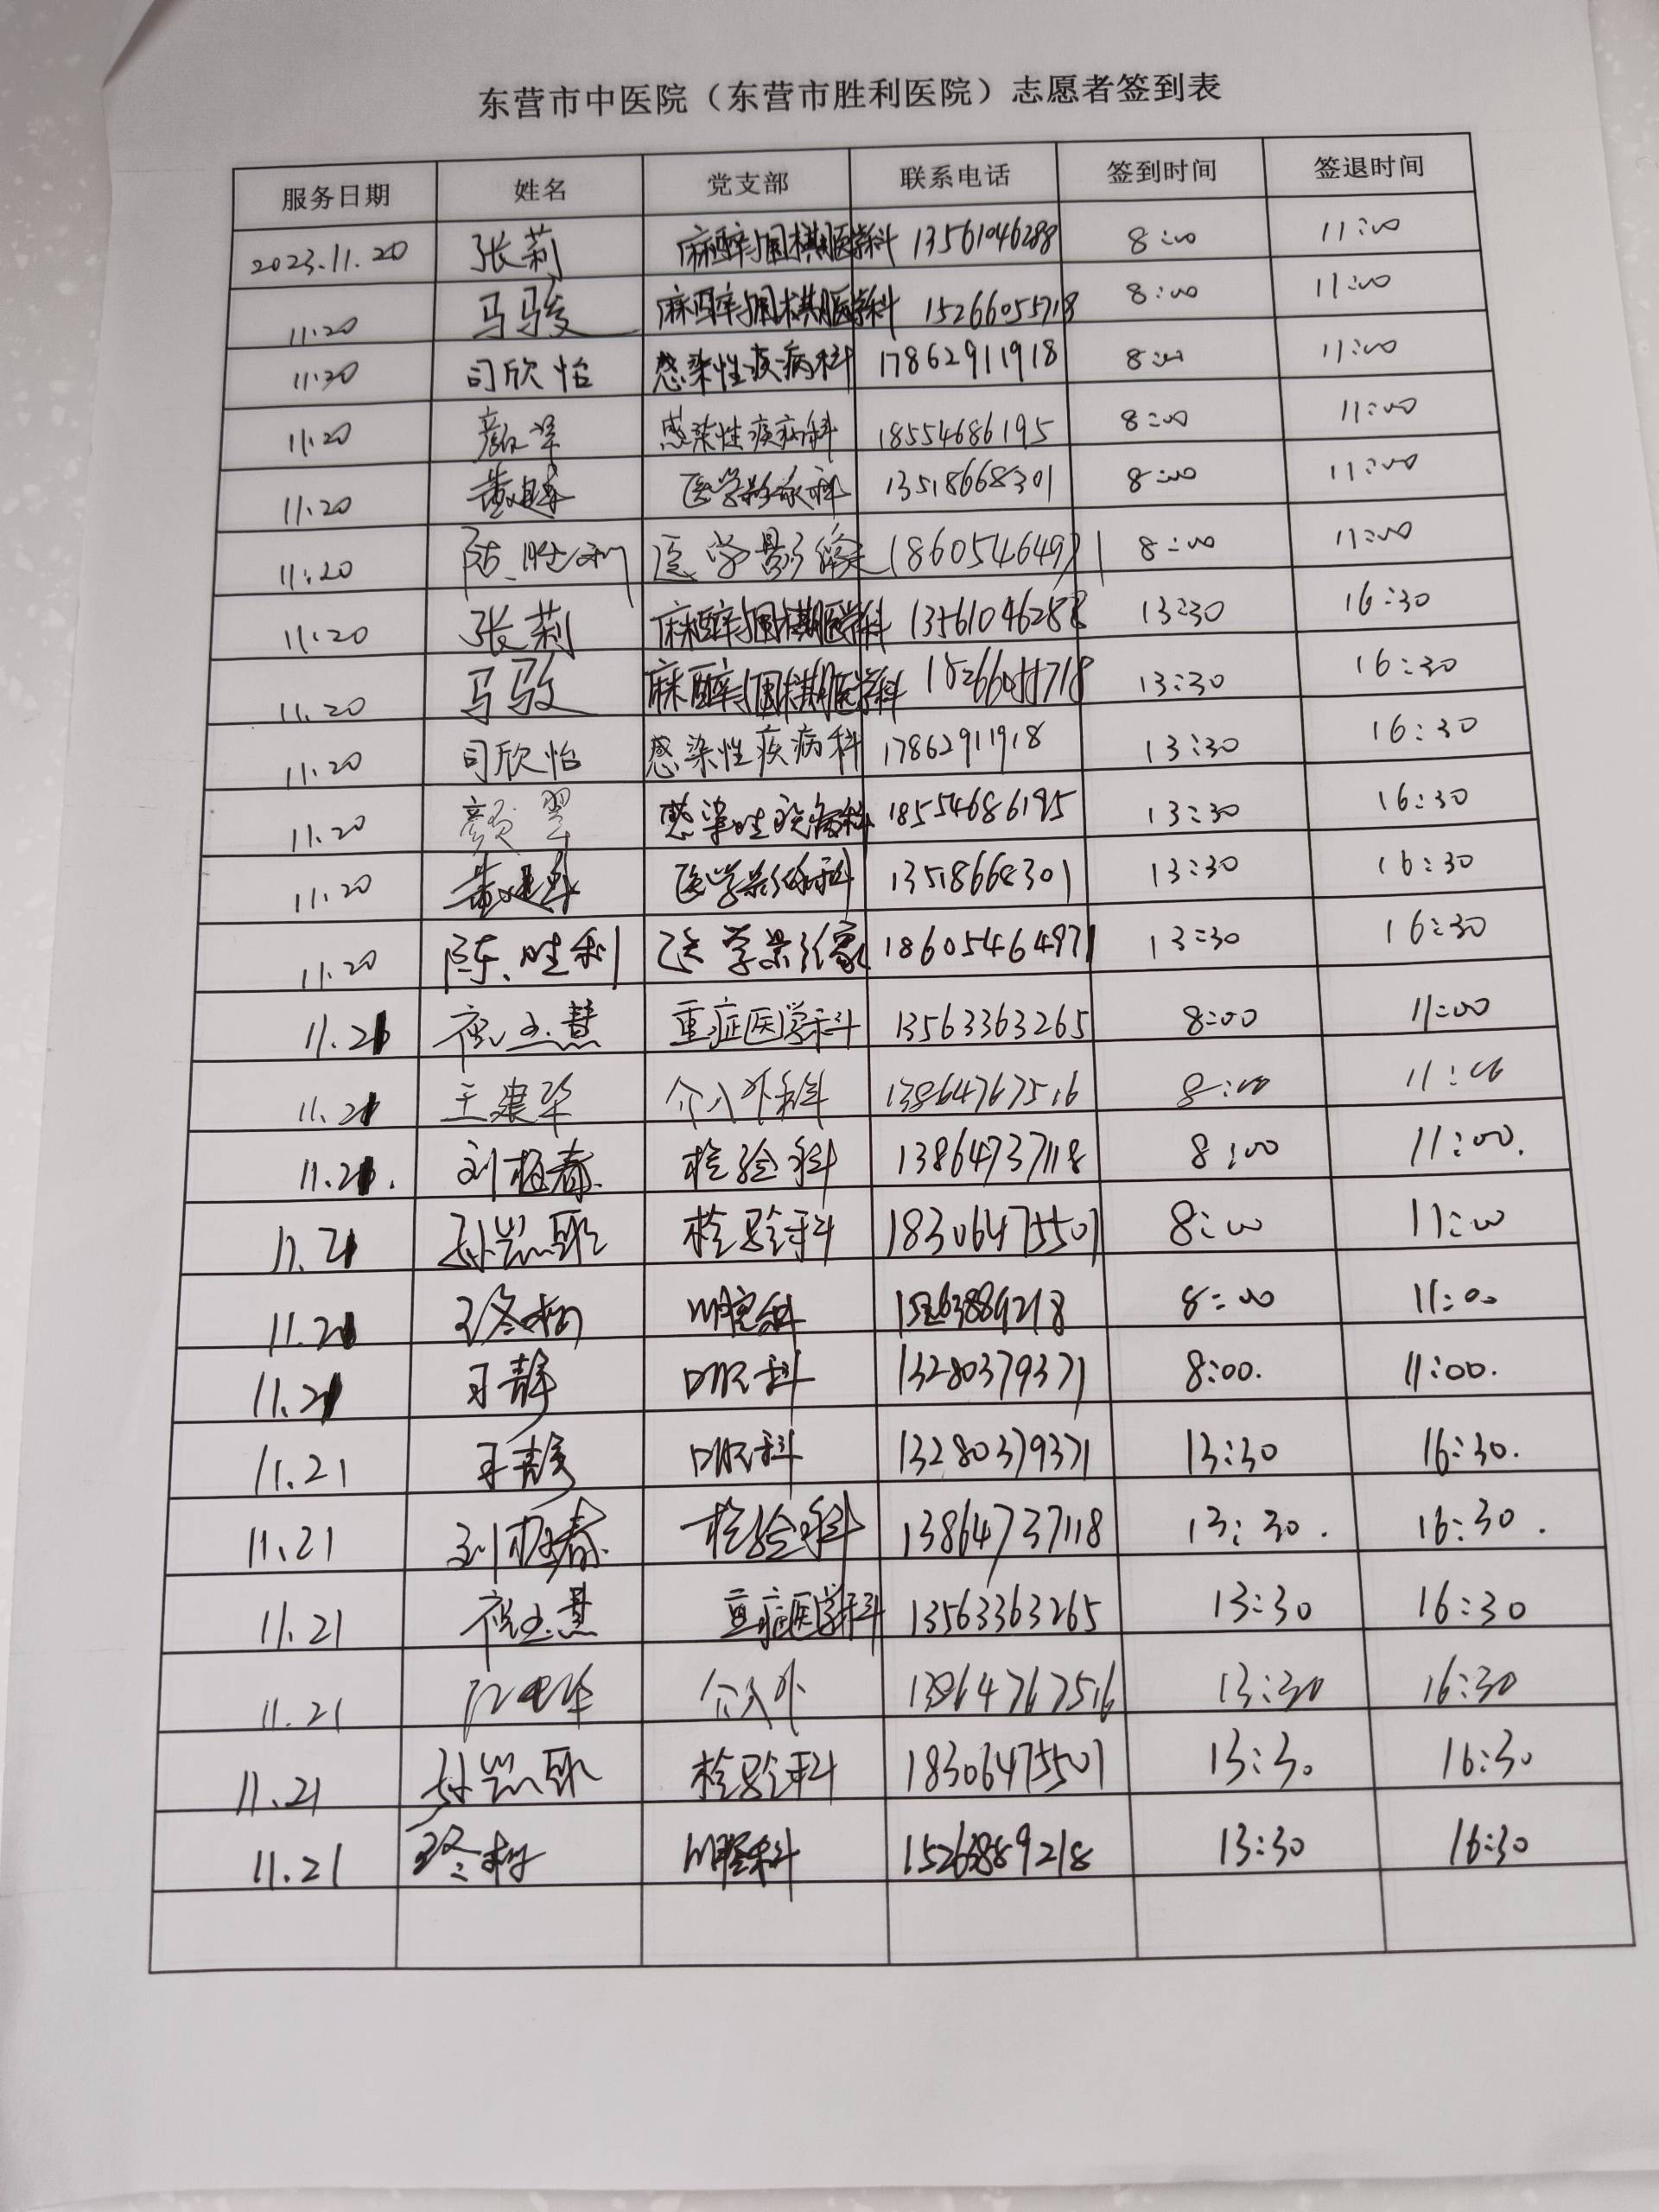 东营市中医院（东营市胜利医院）志愿者签到表
服务日期 姓名 党支部 联系电话 签到时间 签退时间
2023.11.20 张莉 麻醉与围术期医学科 13561046288 8:00 11:00
11.20 马骏 麻醉与围术期医学科 15266055718 8:00 11:00
11.20 司欣怡 感染性疾病科 17862911918 8:00 11:00
11.20 颜翠 感染性疾病科 18554686195 8:00 11:00
11.20 医学影像科 13518668301 8:00 11:00
11.20 陈胜利 医学影像 18605464971 8:00 11:00
11.20 张莉 麻醉与围术期医学科 13561046288 13:30 16:30
11.20 马骏 麻醉与围术期医学科 15266055718 13:30 16:30
11.20 司欣怡 感染性疾病科 17862911918 13:30 16:30
11.20 颜翠 感染性疾病科 18554686195 13:30 16:30
11.20 医学影像科 13518668301 13:30 16:30
11.20 陈胜利 医学影像 18605464971 13:30 16:30
11.21 重症医学科 13563363265 8:00 11:00
11.21 王建华 介入外科 13864767516 8:00 11:00
11.21. 刘梅春 检验科 13864737118 8:00 11:00.
11.21 检验科 18306475501 8:00 11:00
11.21 8:00 11:00
11.21 王静 口腔科 13280379371 8:00. 11:00.
11.21 王静 口腔科 13280379371 13:30 16:30.
11.21 刘梅春 检验科 13864737118 13:30. 16:30.
11.21 重症医学科 13563363265 13:30 16:30
11.21 介入外 13864767516 13:30 16:30
11.21 检验科 18306475501 13:30 16:30
11.21 15263889218 13:30 16:30